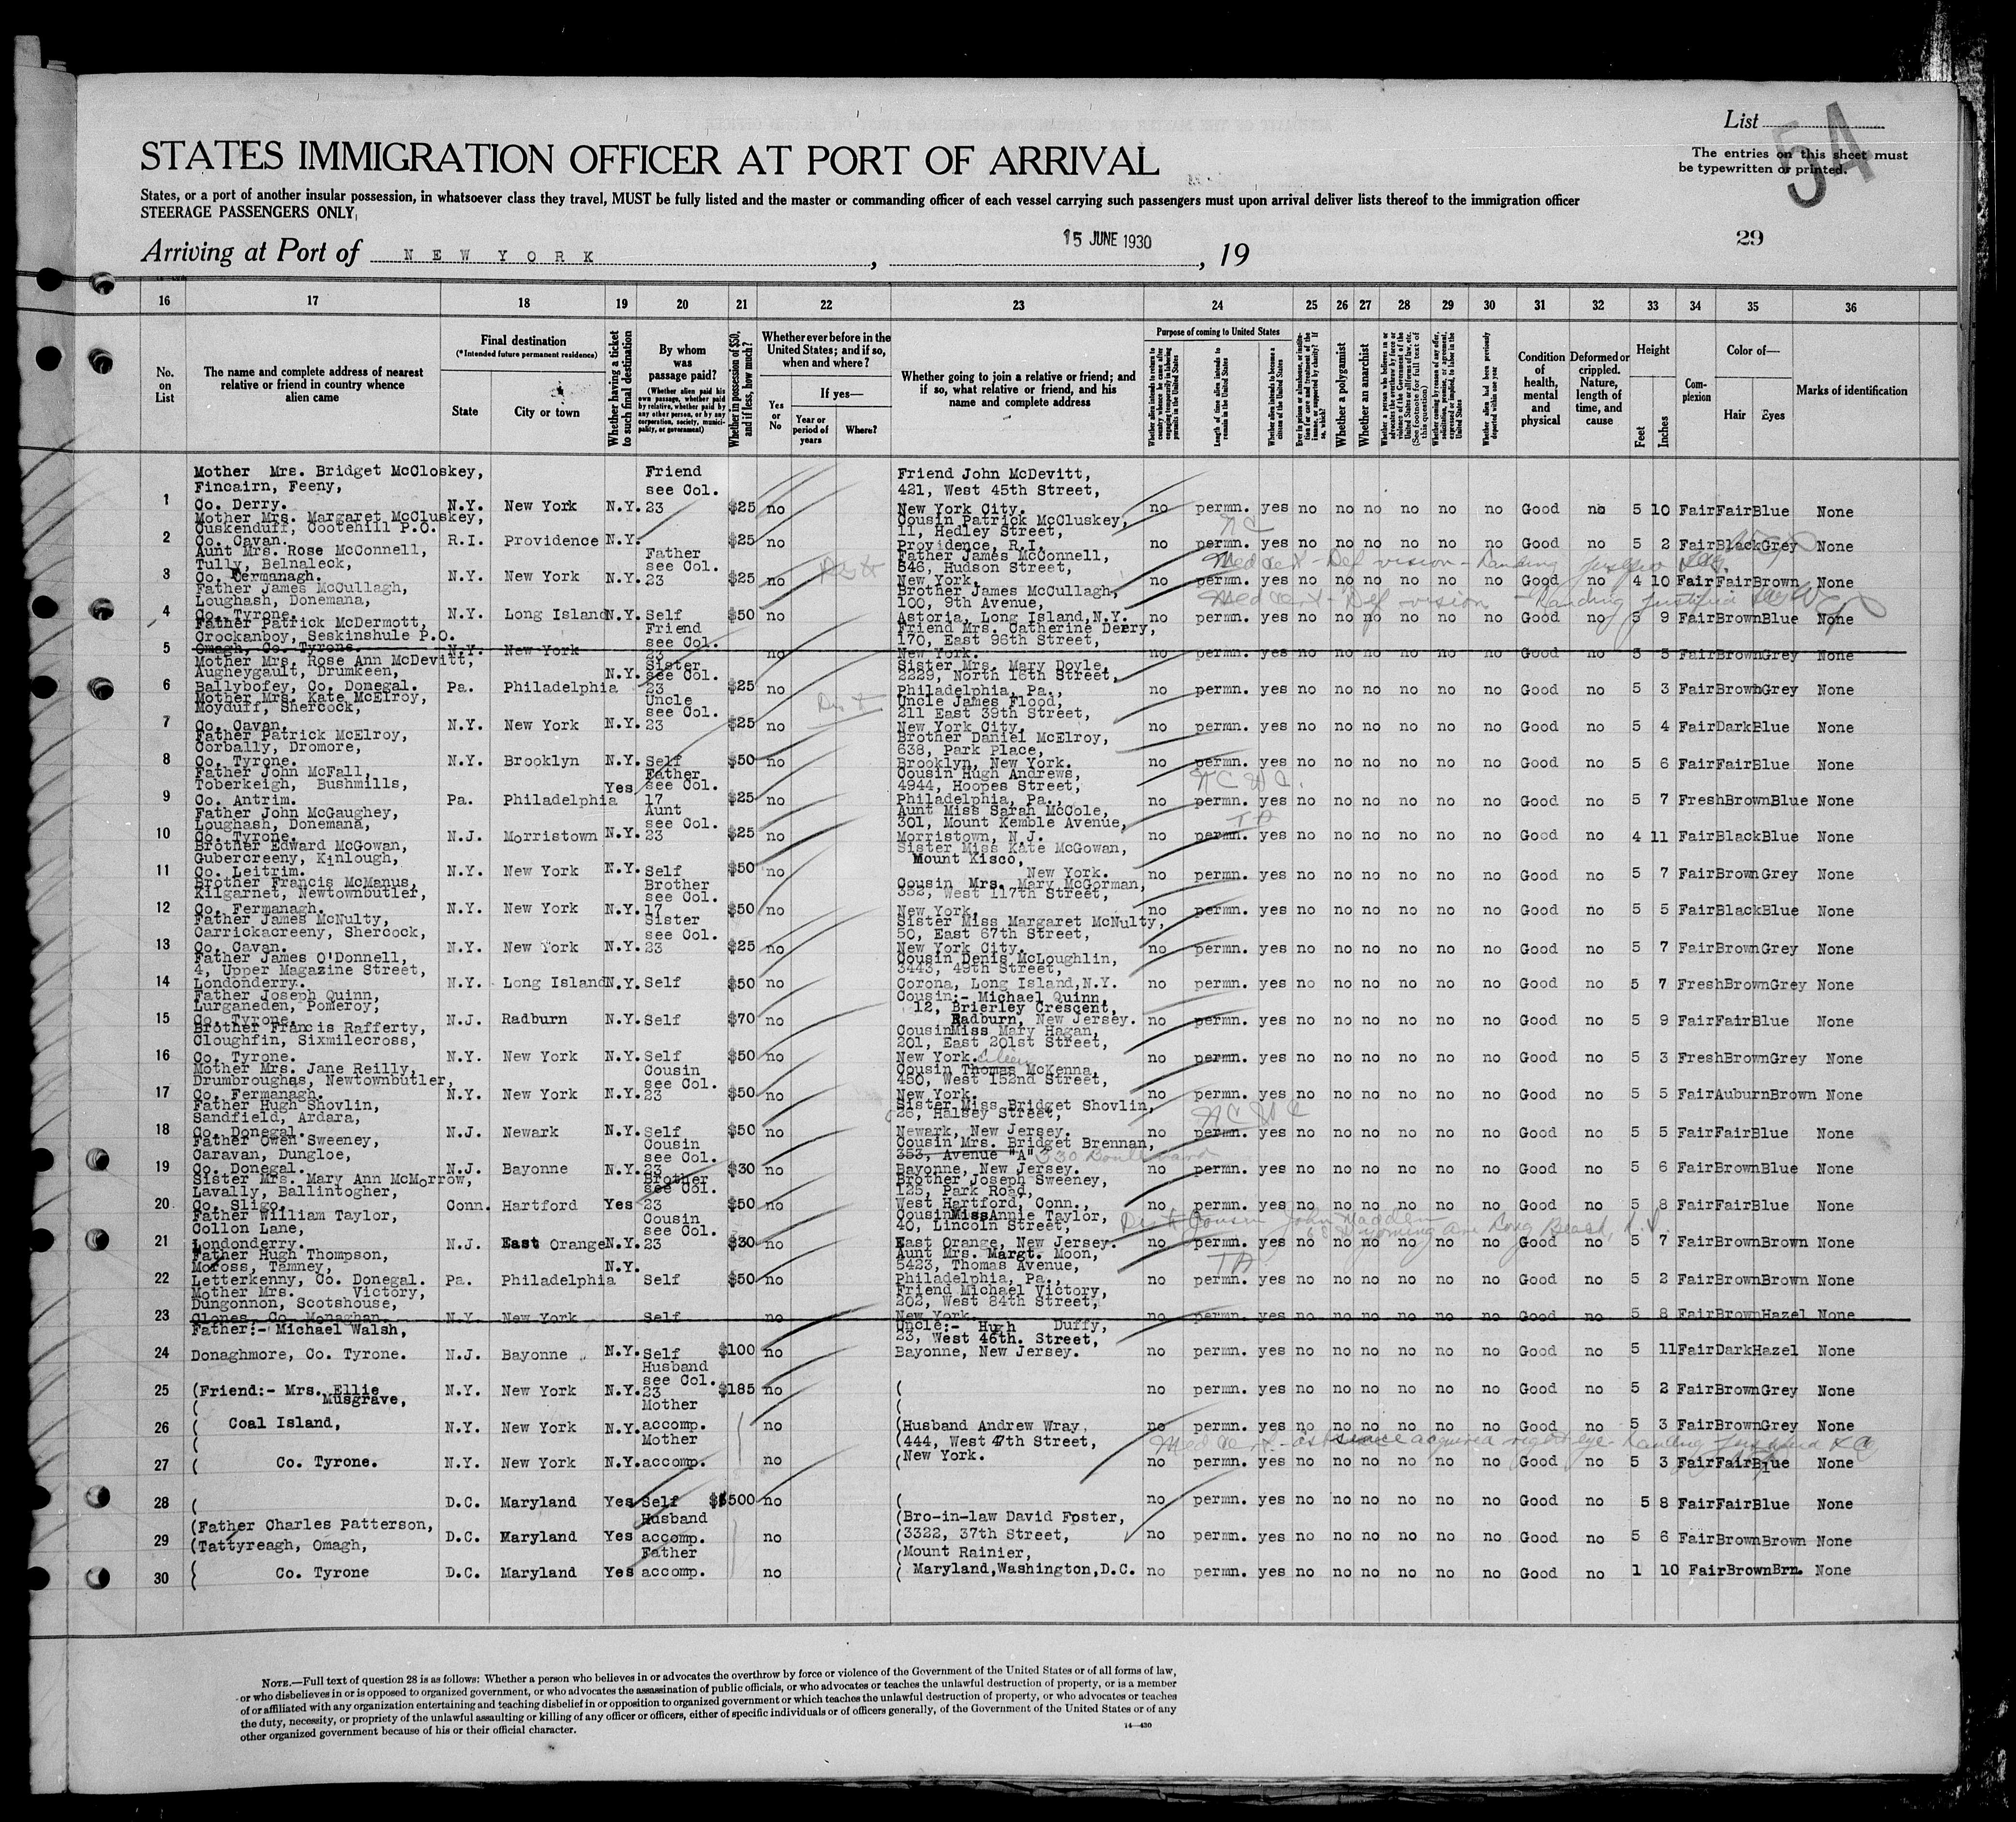 List
54
The entries on this sheet must
be typewritten or printed.
STATES IMMIGRATION OFFICER AT PORT OF ARRIVAL
States, or a port of another insular possession, in whatsoever class they travel, MUST be fully listed and the master or commanding officer of each vessel carrying such passengers must upon arrival deliver lists thereof to the immigration officer
STEERAGE PASSENGERS ONLY
Arriving at Port of NEW YORK, 15 JUNE 1930, 19
29
16 17 18 19 20 21 22 23 24 25 26 27 28 29 30 31 32 33 34 35 36
No. on List
The name and complete address of nearest relative or friend in country whence alien came
Final destination
(*Intended future permanent residence)
State
City or town
Whether having a ticket to such final destination
By whom was passage paid?
(Whether alien paid his own passage, whether paid by relative, whether paid by any other person, or by any corporation, society, municipality, or government)
Whether in possession of $50, and if less, how much?
Whether ever before in the United States; and if so, when and where?
Yes or No
If yes—
Year or period of years
Where?
Whether going to join a relative or friend; and if so, what relative or friend, and his name and complete address
Purpose of coming to United States
Whether alien intends to return to country whence he came after engaging temporarily in laboring pursuits in the United States
Length of time alien intends to remain in the United States
Whether alien intends to become a citizen of the United States
Whether a polygamist
Whether an anarchist
Condition of health, mental and physical
Deformed or crippled. Nature, length of time, and cause
Height
Feet
Inches
Complexion
Color of—
Hair
Eyes
Marks of identification
1 Mother Mrs. Bridget McCloskey, Fincairn, Feeny, Co. Derry. N.Y. New York N.Y. Friend see Col. 23 $25 no Friend John McDevitt, 421, West 45th Street, New York City. no permn. yes no no no no no no Good no 5 10 Fair Fair Blue None
2 Mother Mrs. Margaret McCluskey, Cuskenduff, Cootehill P.O. Co. Cavan. R.I. Providence N.Y. $25 no Cousin Patrick McCluskey, 11, Hedley Street, Providence, R.I. no permn. yes no no no no no no Good no 5 2 Fair Black Grey None
3 Aunt Mrs. Rose McConnell, Tully, Belnaleck, Co. Fermanagh. N.Y. New York N.Y. Father see Col. 23 $25 no Father James McConnell, 546, Hudson Street, New York. Med cert - Def vision - Landing no permn. yes no no no no no no Good no 4 10 Fair Fair Brown None
4 Father James McCullagh, Loughash, Donemana, Co. Tyrone. N.Y. Long Island N.Y. Self $50 no Brother James McCullagh, 100, 9th Avenue, Astoria, Long Island, N.Y. Med cert - Def vision - Landing justified no permn. yes no no no no no no Good no 5 9 Fair Brown Blue None
5 Father Patrick McDermott, Crockanboy, Seskinshule P.O. Omagh, Co. Tyrone. N.Y. New York Friend see Col. 23 no Friend Mrs. Catherine Derry, 170, East 96th Street, New York. no permn. yes no no no no no no Good no 5 5 Fair Brown Grey None
6 Mother Mrs. Rose Ann McDevitt, Augheygault, Drumkeen, Ballybofey, Co. Donegal. Pa. Philadelphia N.Y. Sister see Col. 23 $25 no Sister Mrs. Mary Doyle, 2229, North 16th Street, Philadelphia, Pa., no permn. yes no no no no no no Good no 5 3 Fair Brown Grey None
7 Mother Mrs. Kate McElroy, Moyduff, Shercock, Co. Cavan. N.Y. New York N.Y. Uncle see Col. 23 $25 no Uncle James Flood, 211 East 39th Street, New York City. no permn. yes no no no no no no Good no 5 4 Fair Dark Blue None
8 Father Patrick McElroy, Corbally, Dromore, Co. Tyrone. N.Y. Brooklyn N.Y. Self $50 no Brother Daniel McElroy, 638, Park Place, Brooklyn, New York. no permn. yes no no no no no no Good no 5 6 Fair Fair Blue None
9 Father John McFall, Toberkeigh, Bushmills, Co. Antrim. Pa. Philadelphia Yes Father see Col. 17 $25 no Cousin Hugh Andrews, 4944, Hoopes Street, Philadelphia, Pa., no permn. yes no no no no no no Good no 5 7 Fresh Brown Blue None
10 Father John McGaughey, Loughash, Donemana, Co. Tyrone. N.J. Morristown N.Y. Aunt see Col. 23 $25 no Aunt Miss Sarah McCole, 301, Mount Kemble Avenue, Morristown, N.J. no permn. yes no no no no no no Good no 4 11 Fair Black Blue None
11 Brother Edward McGowan, Gubercreeny, Kinlough, Co. Leitrim. N.Y. New York N.Y. Self $50 no Sister Miss Kate McGowan, Mount Kisco, New York. no permn. yes no no no no no no Good no 5 7 Fair Brown Grey None
12 Brother Francis McManus, Kilgarnet, Newtownbutler, Co. Fermanagh. N.Y. New York N.Y. Brother see Col. 17 $50 no Cousin Mrs. Mary McGorman, 352, West 117th Street, New York. no permn. yes no no no no no no Good no 5 5 Fair Black Blue None
13 Father James McNulty, Carrickacreeny, Shercock, Co. Cavan. N.Y. New York N.Y. Sister see Col. 23 $25 no Sister Miss Margaret McNulty, 50, East 67th Street, New York City. no permn. yes no no no no no no Good no 5 7 Fair Brown Grey None
14 Father James O'Donnell, 4, Upper Magazine Street, Londonderry. N.Y. Long Island N.Y. Self $50 no Cousin Denis McLoughlin, 3443, 49th Street, Corona, Long Island, N.Y. no permn. yes no no no no no no Good no 5 7 Fresh Brown Grey None
15 Father Joseph Quinn, Lurganeden, Pomeroy, Co. Tyrone. N.J. Radburn N.Y. Self $70 no Cousin:- Michael Quinn, 12, Brierley Crescent, Radburn, New Jersey. no permn. yes no no no no no no Good no 5 9 Fair Fair Blue None
16 Brother Francis Rafferty, Cloughfin, Sixmilecross, Co. Tyrone. N.Y. New York N.Y. Self $50 no Cousin Miss Mary Hagan, 201, East 201st Street, New York. no permn. yes no no no no no no Good no 5 3 Fresh Brown Grey None
17 Mother Mrs. Jane Reilly, Drumbroughas, Newtownbutler, Co. Fermanagh. N.Y. New York N.Y. Cousin see Col. 23 $50 no Cousin Thomas McKenna, 450, West 152nd Street, New York. no permn. yes no no no no no no Good no 5 5 Fair Auburn Brown None
18 Father Hugh Shovlin, Sandfield, Ardara, Co. Donegal. N.J. Newark N.Y. Self $50 no Sister Miss Bridget Shovlin, 26, Halsey Street, Newark, New Jersey. no permn. yes no no no no no no Good no 5 5 Fair Fair Blue None
19 Father Owen Sweeney, Caravan, Dungloe, Co. Donegal. N.J. Bayonne N.Y. Cousin see Col. 23 $30 no Cousin Mrs. Bridget Brennan, 353, Avenue "A" 330 Boulevard Bayonne, New Jersey. no permn. yes no no no no no no Good no 5 6 Fair Brown Blue None
20 Sister Mrs. Mary Ann McMorrow, Lavally, Ballintogher, Co. Sligo. Conn. Hartford Yes Brother see Col. 23 $50 no Brother Joseph Sweeney, 125, Park Road, West Hartford, Conn., no permn. yes no no no no no no Good no 5 8 Fair Fair Blue None
21 Father William Taylor, Collon Lane, Londonderry. N.J. East Orange N.Y. Cousin see Col. 23 $30 no Cousin Miss Annie Taylor, 40, Lincoln Street, East Orange, New Jersey. Cousin John Madden Wyoming Ave Long Beach, no permn. yes no no no no no no Good no 5 7 Fair Brown Brown None
22 Father Hugh Thompson, Moross, Tamney, Letterkenny, Co. Donegal. Pa. Philadelphia N.Y. Self $50 no Aunt Mrs. Margt. Moon, 5423, Thomas Avenue, Philadelphia, Pa., no permn. yes no no no no no no Good no 5 2 Fair Brown Brown None
23 Mother Mrs. Victory, Dungonnon, Scotshouse, Clones, Co. Monaghan. N.Y. New York Self no Friend Michael Victory, 202, West 84th Street, New York. no permn. yes no no no no no no Good no 5 8 Fair Brown Hazel None
24 Father:- Michael Walsh, Donaghmore, Co. Tyrone. N.J. Bayonne N.Y. Self $100 no Uncle:- Hugh Duffy, 23, West 46th. Street, Bayonne, New Jersey. no permn. yes no no no no no no Good no 5 11 Fair Dark Hazel None
25 (Friend:- Mrs. Ellie Musgrave, N.Y. New York N.Y. Husband see Col. 23 $185 no ( no permn. yes no no no no no no Good no 5 2 Fair Brown Grey None
26 ( Coal Island, N.Y. New York N.Y. Mother accomp. no (Husband Andrew Wray, (444, West 47th Street, no permn. yes no no no no no no Good no 5 3 Fair Brown Grey None
27 ( Co. Tyrone. N.Y. New York N.Y. Mother accomp. no (New York. no permn. yes no no no no no no Good no 5 3 Fair Fair Blue None
28 ( D.C. Maryland Yes Self $500 no ( no permn. yes no no no no no no Good no 5 8 Fair Fair Blue None
29 (Father Charles Patterson, (Tattyreagh, Omagh, D.C. Maryland Yes Husband accomp. no (Bro-in-law David Foster, (3322, 37th Street, no permn. yes no no no no no no Good no 5 6 Fair Brown Brown None
30 ( Co. Tyrone D.C. Maryland Yes Father accomp. no (Mount Rainier, ( Maryland, Washington, D.C. no permn. yes no no no no no no Good no 1 10 Fair Brown Brn. None
NOTE.—Full text of question 28 is as follows: Whether a person who believes in or advocates the overthrow by force or violence of the Government of the United States or of all forms of law,
or who disbelieves in or is opposed to organized government, or who advocates the assassination of public officials, or who advocates or teaches the unlawful destruction of property, or is a member
of or affiliated with any organization entertaining and teaching disbelief in or opposition to organized government or which teaches the unlawful destruction of property, or who advocates or teaches
the duty, necessity, or propriety of the unlawful assaulting or killing of any officer or officers, either of specific individuals or of officers generally, of the Government of the United States or of any
other organized government because of his or their official character.
14—430